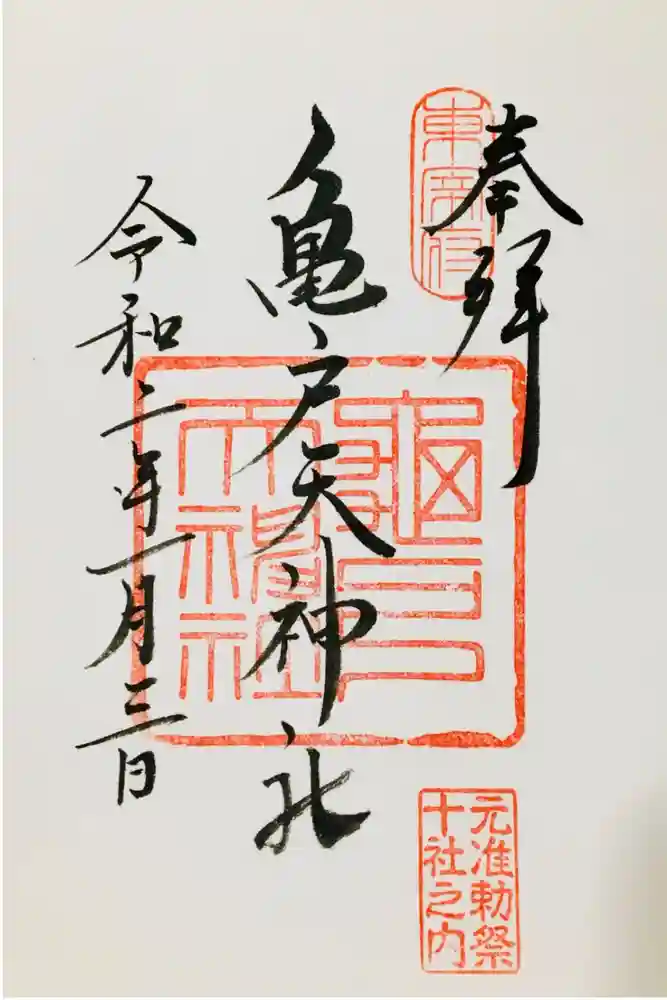 奉拝
東宰府
亀戸天神社
令和二年一月三日
元准勅祭
十社之内